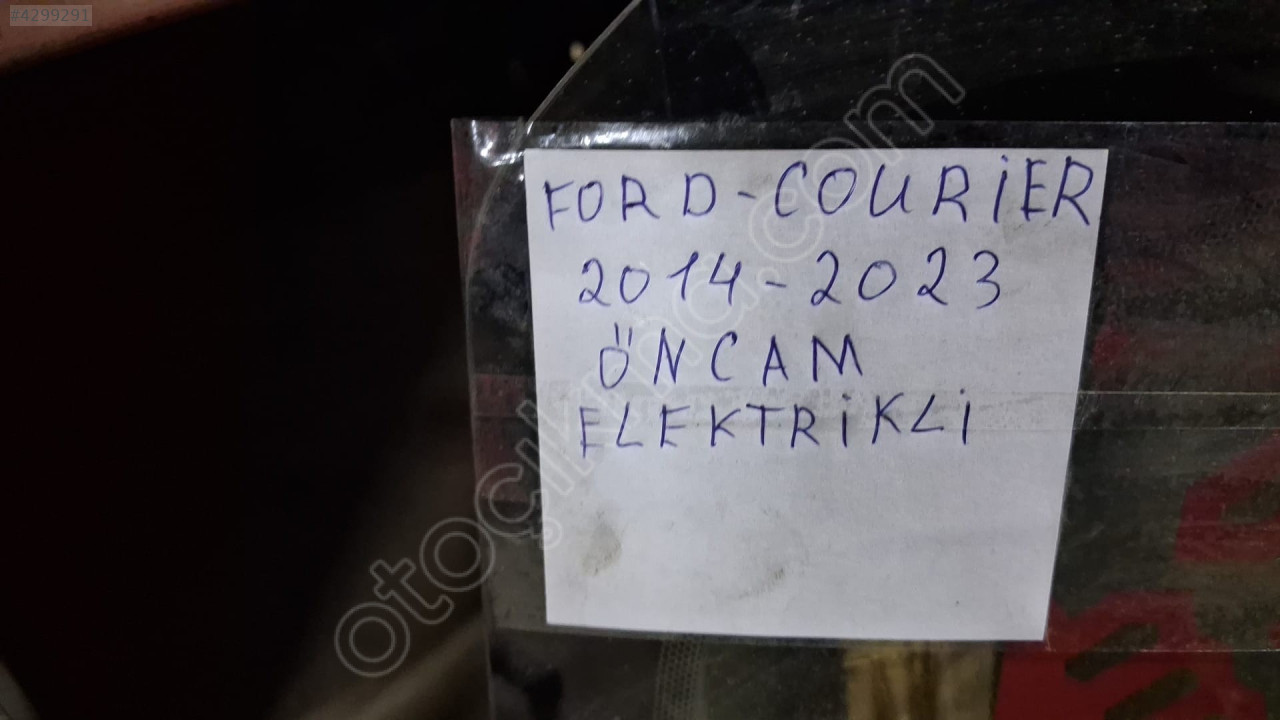 #4299291
FORD-COURİER
2014-2023
ÖNCAM
ELEKTRİKLİ
otoçıkma.com